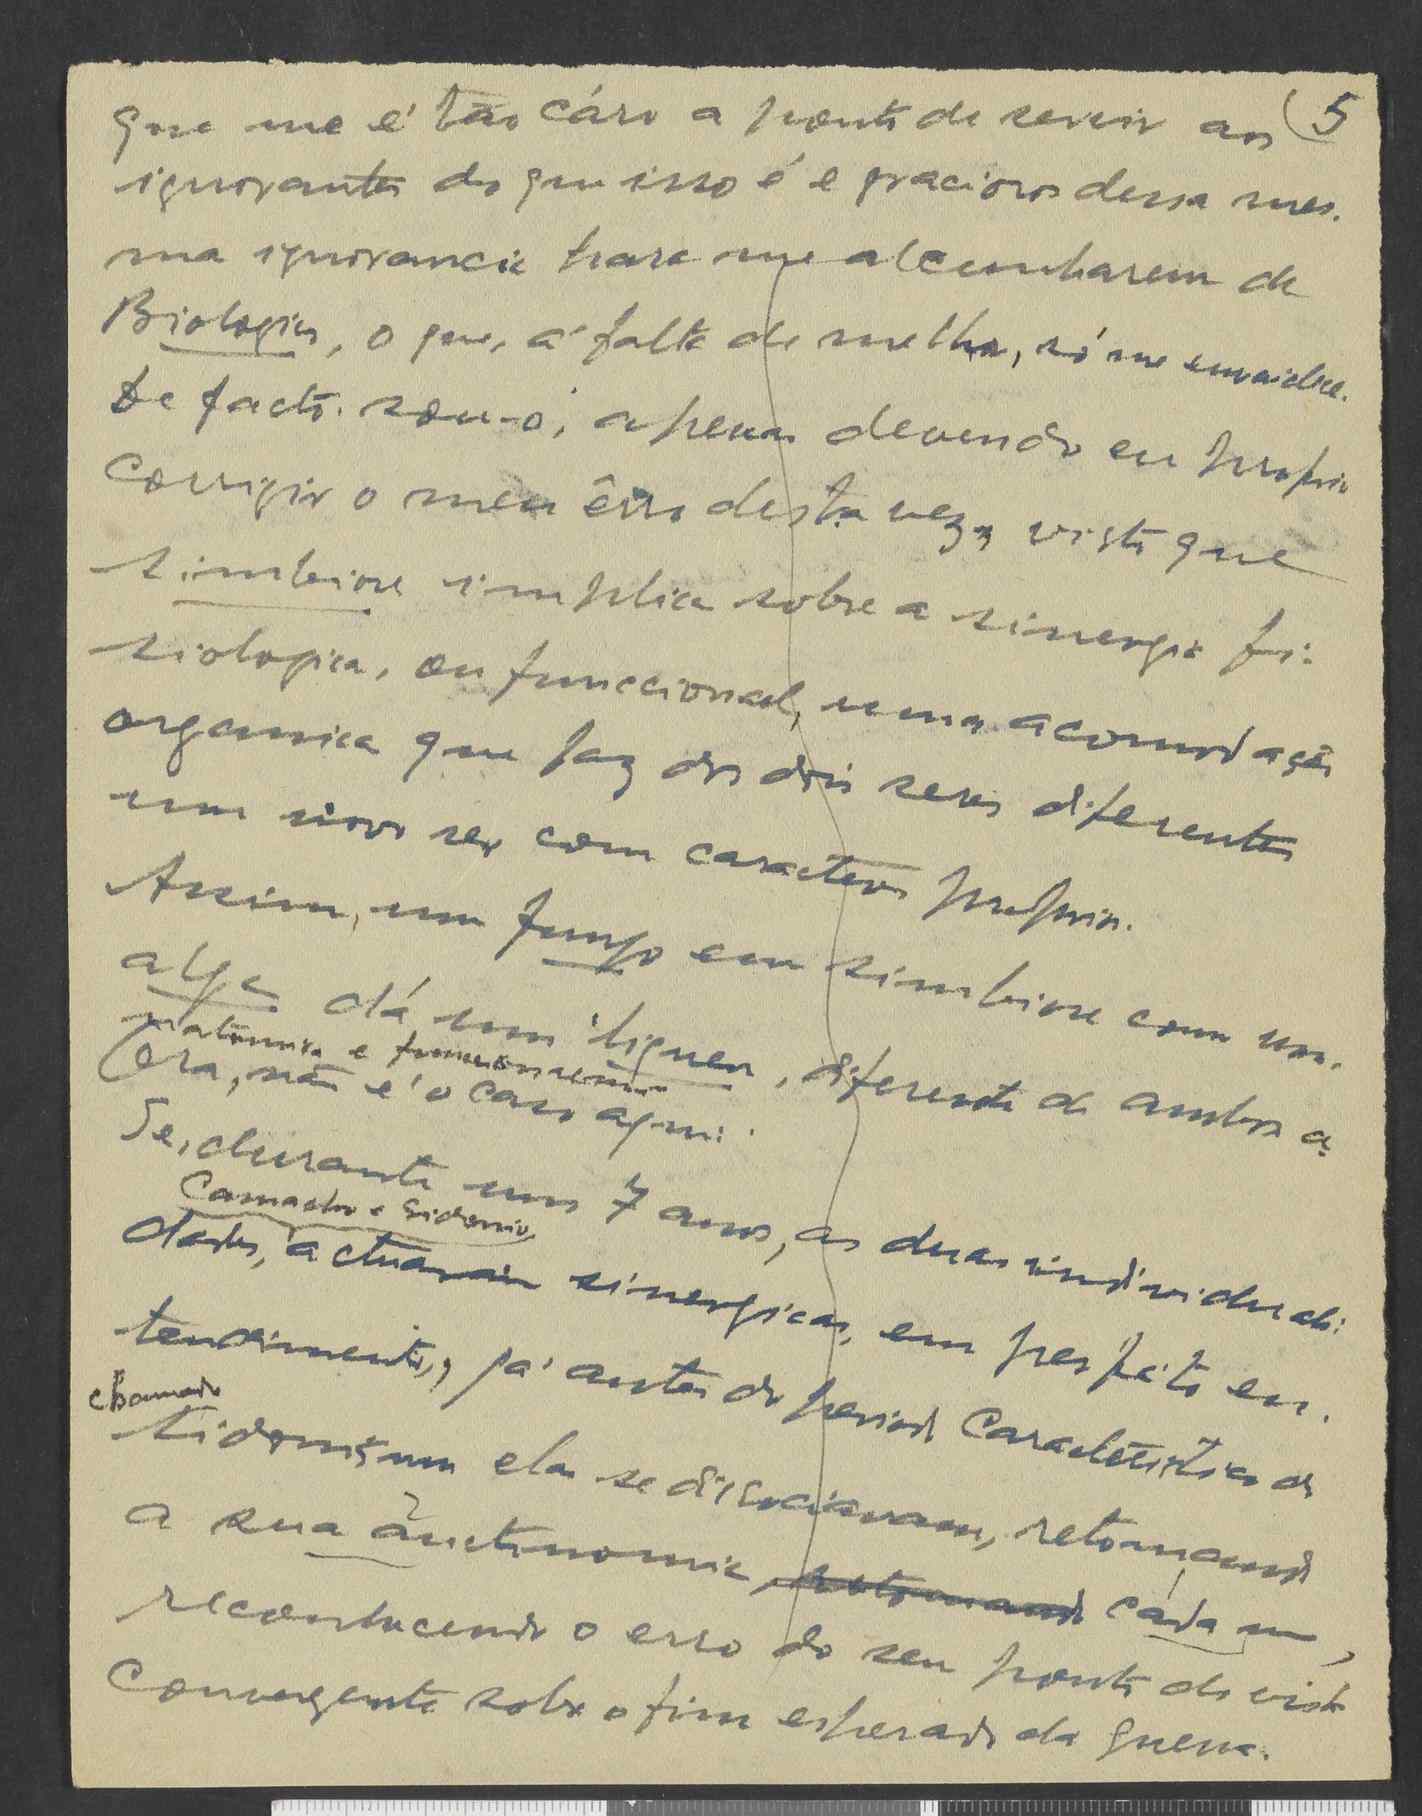 (5
que me é tão cáro a ponto de servir aos
ignorantes do que isso é e graciosos dessa mes-
ma ignorancia para me alcunharem de
Biologico, o que, á falta de melhor, só me envaidece.
De facto. sou-o, apenas devendo eu proprio
corrigir o meu êrro desta vez, visto que
simbiose implica sobre a sinergia fi-
siologica, ou funccional, uma acomodação
organica que faz dos dois seres diferentes
um novo ser com caracteres proprios.
Assim, um fungo em simbiose com uma
alga dá um liquen, diferente de ambos a
natomica e funcionalmente
Ora, não é o caso aqui.
Se, durante uns 7 anos, as duas individuali-
Camacho e Sidonio,
dades, actuaram sinergicas, em perfeito en-
tendimento, já antes do periodo caracteristico do
chamado
sidonismo elas se dissociavam, retomando
a sua auctonomia, retomando cáda um,
reconhecendo o erro do seu ponto de vista
convergente sobre o fim esperado da guerra.